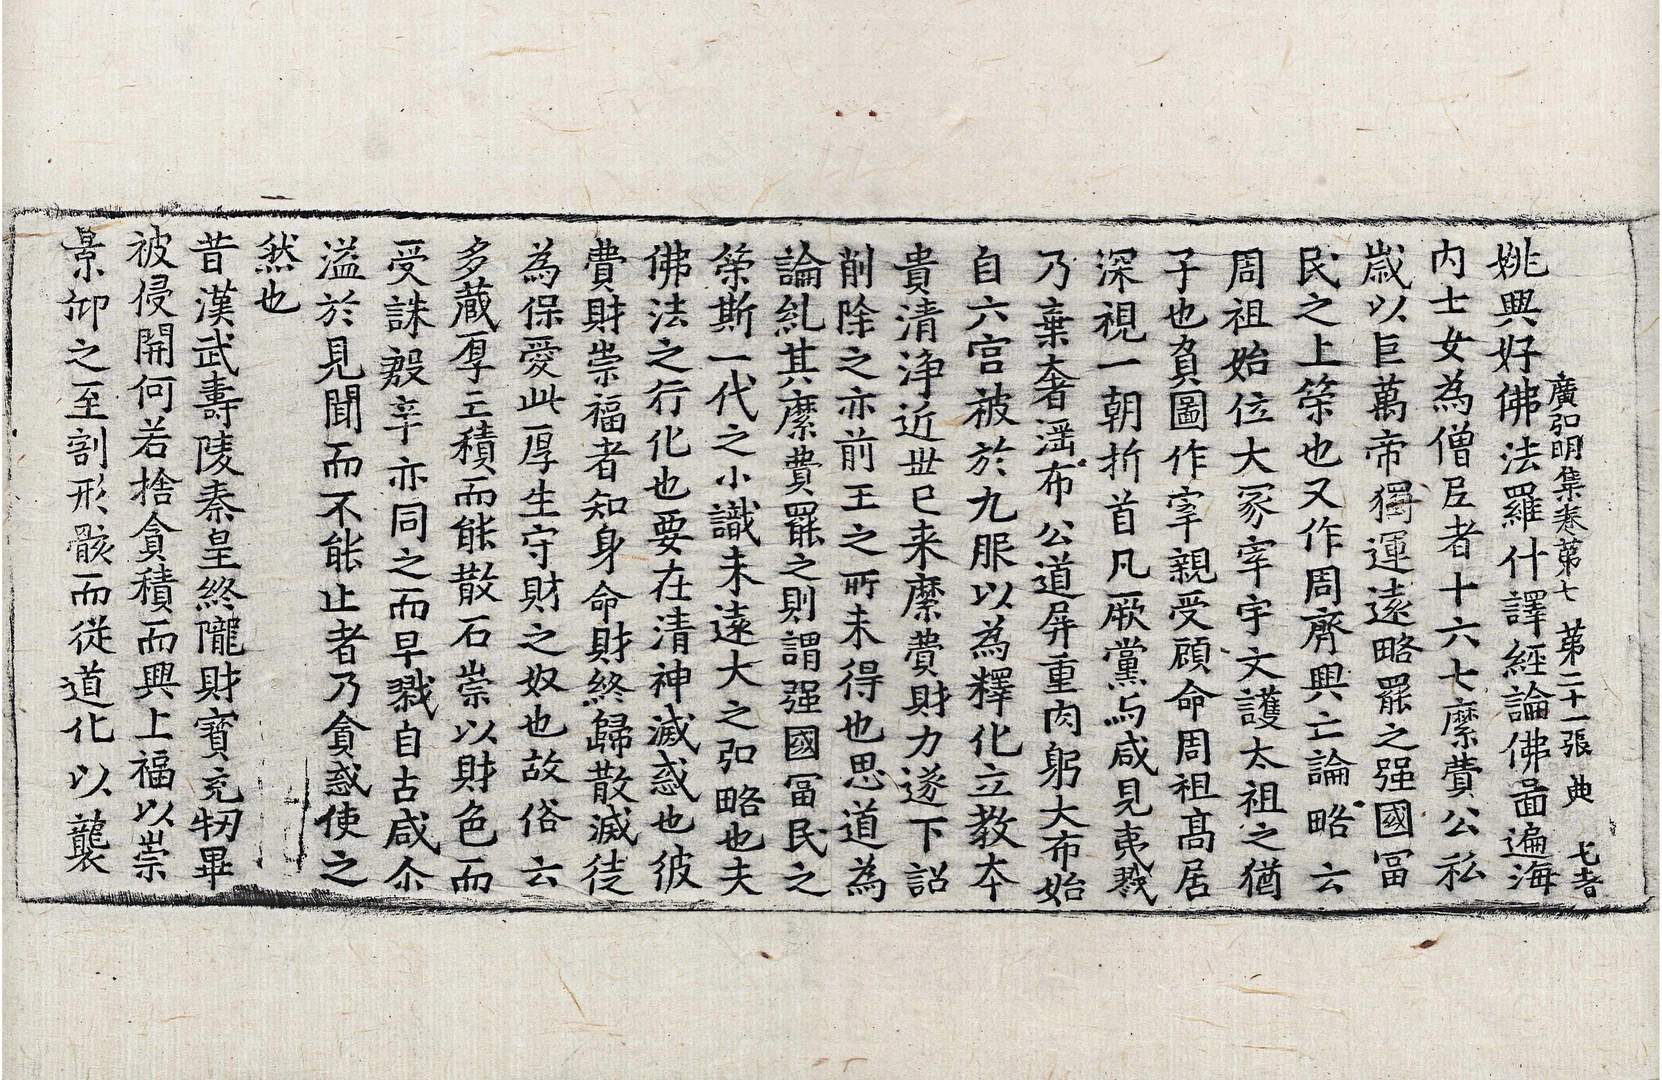 廣弘明集卷第七 第二十一張 典 七者
姚興好佛法羅什譯經論佛啚遍海
內士女為僧𡰱者十六七縻費公私
歲以巨萬帝獨運遠略罷之强國冨
民之上筞也又作周齊興亡論略云
周祖始位大冢宰宇文護太祖之猶
子也負圖作宰親受顧命周祖髙居
深視一朝折首凡厥黨与咸見夷戮
乃棄奢滛布公道屏重肉躬大布始
自六宫被於九服以為釋化立教夲
貴清淨近世已来縻費財力遂下詔
削除之亦前王之所未得也思道為
論糺其縻費罷之則謂强國冨民之
筞斯一代之小識未遠大之弘略也夫
佛法之行化也要在清神滅惑也彼
費財崇福者知身命財終歸散滅徒
為保愛此厚生守財之奴也故俗云
多蔵厚亡積而能散石崇以財色而
受誅殷辛亦同之而早戮自古咸尒
溢於見聞而不能止者乃貪惑使之
然也
昔漢武壽陵秦皇終隴財寳充牣畢
被侵開何若捨貪積而興上福以崇
景仰之至割形骸而從道化以襲